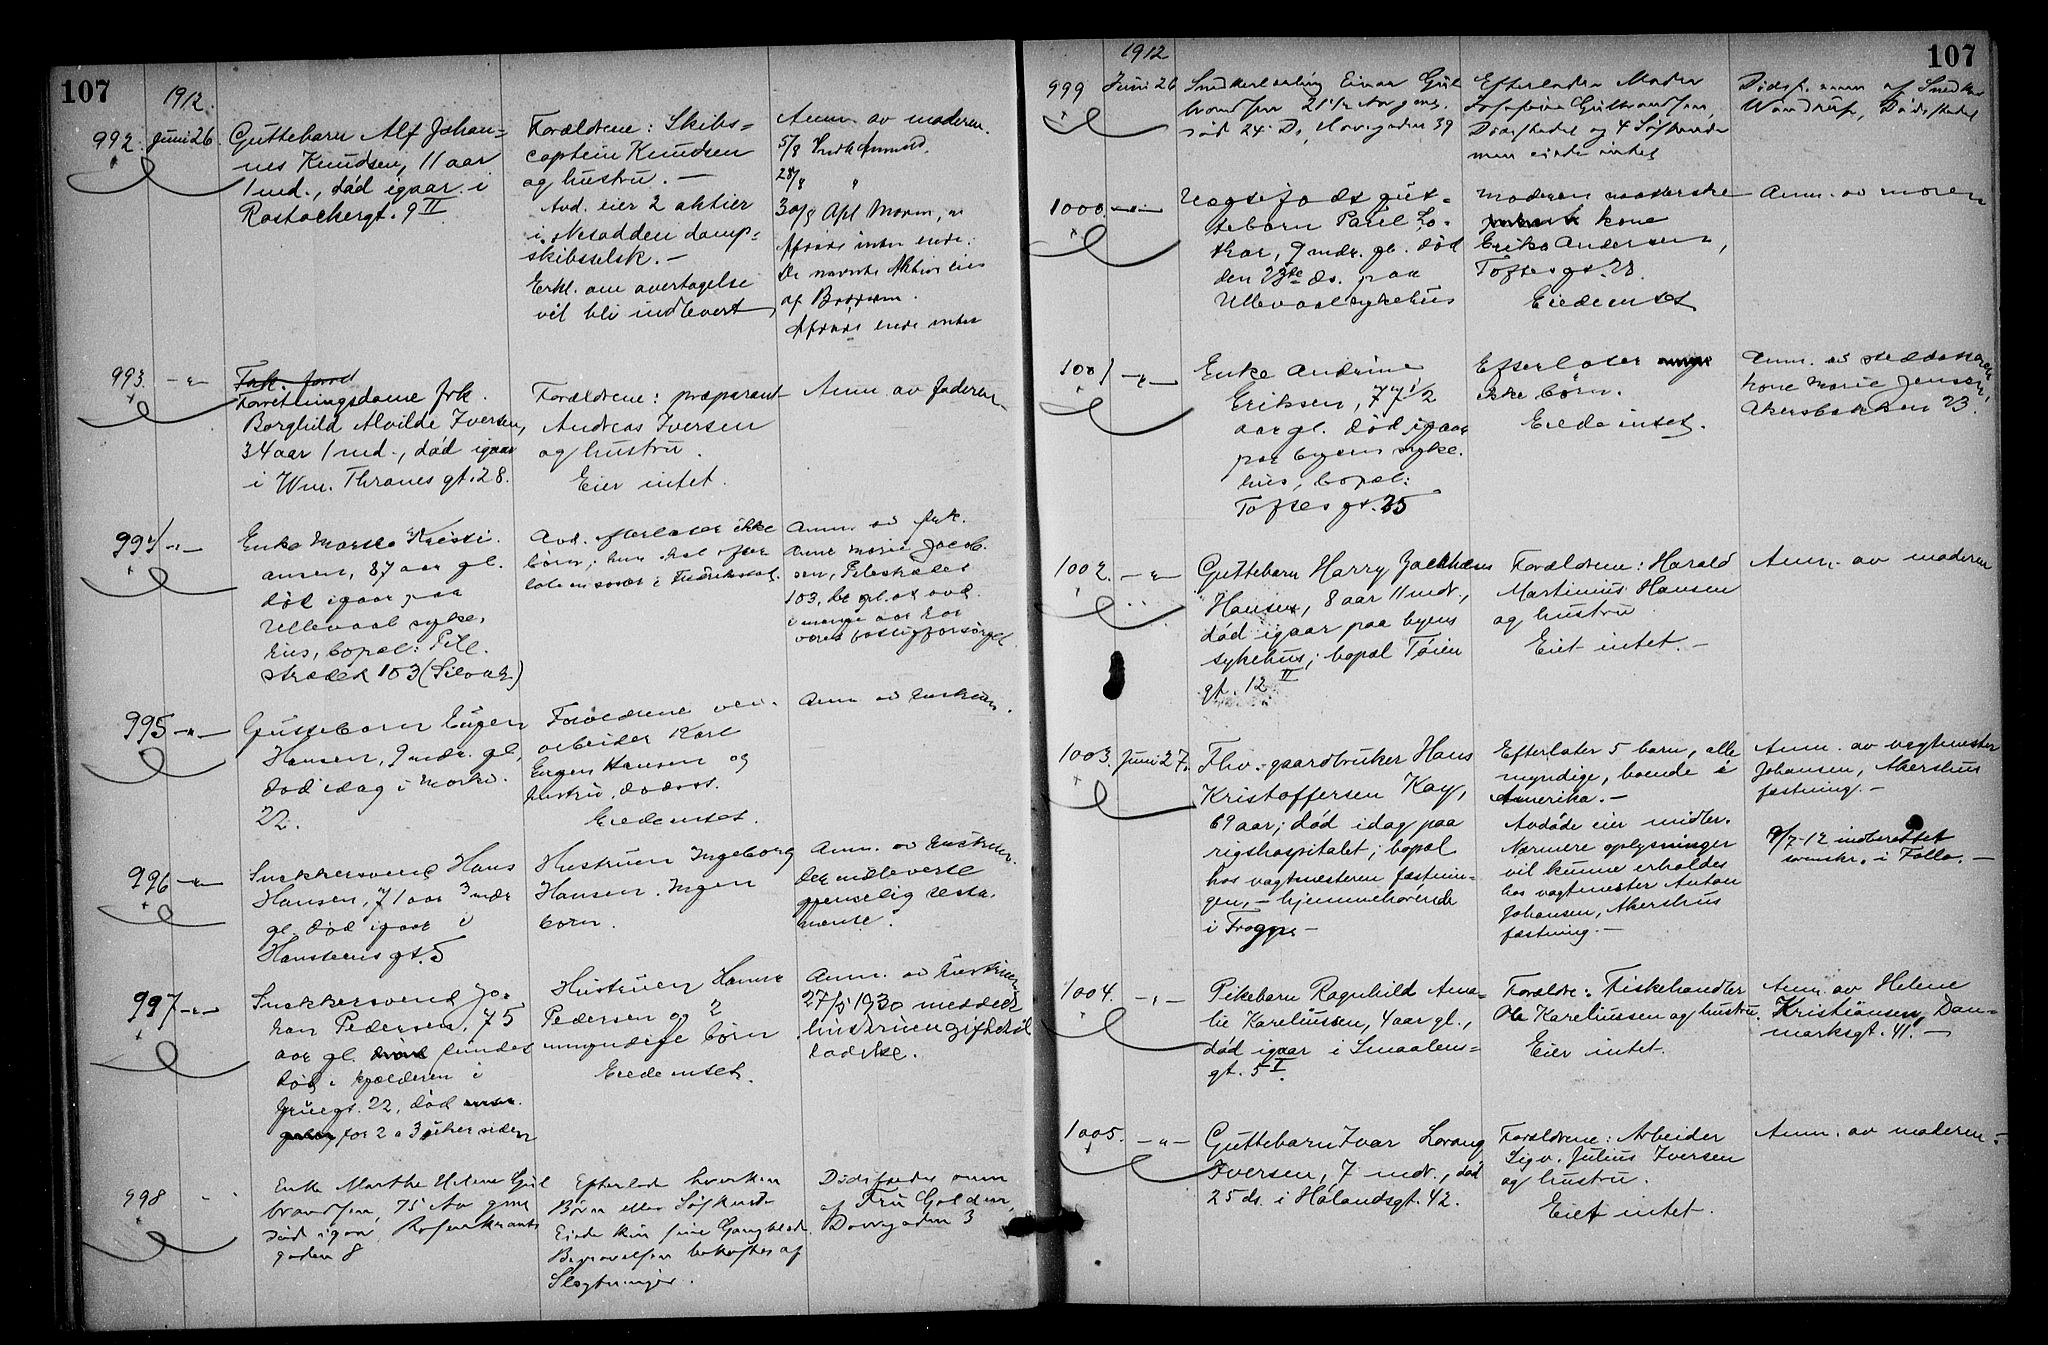 107
1912.
992. Juni 26.
Guttebarn Alf Johan-
nes Knudsen, 11 aar
1 md., død igaar i
Rostockergt. 9 II
Forældrene: Skibs-
captein Knudsen
og hustru. —
Avd. eier 2 aktier
i Nesodden damp-
skibsselsk. —
Erkl. om overtagelse
vil bli indlevert
Anm. av moderen.
5/8
28/8 "
30/8
De nævnte Aktier eies
af
993. — " —
Forretningsdame frk.
Borghild Alvilde Iversen,
34 aar 1 md., død igaar
i Wm. Thranes gt. 28.
Forældrene: præparant
Andreas Iversen
og hustru.
Eier intet.
Anm. av faderen.
994 — " —
Enke Marte Kristi-
ansen, 87 aar gl.
død igaar paa
Ullevaal syke-
hus, bopæl: Pile-
strædet 103
Avd. efterlater ikke
børn; hun skal efter-
late en søster i Fredrikstad.
Anm. av frk.
Anne Marie Jacob-
sen, Pilestrædet
103,
i mange aar har
været fattigforsørget.
995 — " —
Guttebarn Eugen
Hansen, 9 mdr. gl.
død idag i Markv.
22.
Forældrene vei-
arbeider Karl
Eugen Hansen og
hustru, dødsst.
Eiede intet.
Anm. av hustruen.
996 — " —
Snekkersvend Hans
Hansen, 71 aar 3 mdr
gl. død igaar i
Hansteensgt. 5
Hustruen Ingeborg
Hansen. Ingen
børn.
Anm. av hustruen.
Der indleverte
gjensidig testa-
mente.
997 — " —
Snekkersvend Jo-
han Pedersen, 75
aar gl. fundet
død i kjælderen i
Gruegt. 22, død
for 2 a 3 uker siden
Hustruen Hanna
Pedersen og 2
umyndige børn
Eiede intet.
Anm. av hustruen
27/5 1930 meddelt
hustruen giftetil-
ladelse.
998
Enke Marthe Helene Gul
brandsen, 75 Aar gml
død igaar, Rosenkrantz
gaden 8
Efterlod hverken
Børn eller Søskende
Eiede kun sine Gangklæder
Begravelsen bekostes af
Slægtninger.
Dødsfaldet anm
af Fru Golden,
Dovregaden 3
107
1912
999 Juni 26
Snedkerlærling Einar Gul
brandsen 21 1/2 Aar gml.
død 24 D, 39
Efterlader Moder
Josefine Gulbrandsen,
Dødsstedet og 4 Søskende
men eiede intet
Dødsf. anm af Snedker
Wandrup, Dødsstedet
1000. — " —
Uegtefødt gut-
tebarn Parel Lo-
thar, 9 mdr. gl. død
den 23de ds. paa
Ullevaal sykehus
Moderen
kone
Erika Andersen,
Toftesgt. 28.
Eiede intet
Anm. av moren
1001 — " —
Enke Andrine
Eriksen, 77 1/2
aar gl. død igaar
paa byens syke-
hus, bopæl:
Toftes gt. 25
Efterlater
ikke børn.
Eiede intet.
Anm. av
kone Marie Jensen,
Akersbakken 23.
1002. — " —
Guttebarn Harry
Hansen, 8 aar 11 mdr.,
død igaar paa byens
sykehus; bopæl Tøien
gt. 12 II
Forældrene: Harald
Martinius Hansen
og hustru
Eiet intet. —
Anm. av moderen
1003. Juni 27.
Fhv. gaardbruker Hans
Kristoffersen Kay,
69 aar; død idag paa
rigshospitalet; bopæl
hos vagtmesteren fæstnin-
gen, — hjemmehørende
i Frogge —
Efterlater 5 barn, alle
myndige, boende i
Amerika. —
Avdøde eier midler.
Nærmere oplysninger
vil kunne erholdes
hos vagtmester Anton
Johansen, Akershus
fæstning. —
Anm. av vagtmester
Johansen, Akershus
fæstning. —
9/7-12 indberettet
sorenskr. i Follo. —
1004. — " —
Pikebarn Ragnhild Ama-
lie Kareliussen, 4 aar gl.,
død igaar i Smaalens-
gt. 5 I.
Forældre: Fiskehandler
Ole Kareliussen og hustru.
Eier intet.
Anm. av Helene
Kristiansen, Dan-
marksgt. 41. —
1005. — " —
Guttebarn Ivar Lorang
Iversen, 7 mdr., død
25 ds. i Hølandsgt. 42.
Forældrene: Arbeider
Sigv. Julius Iversen
og hustru.
Eiet intet.
Anm. av moderen. —